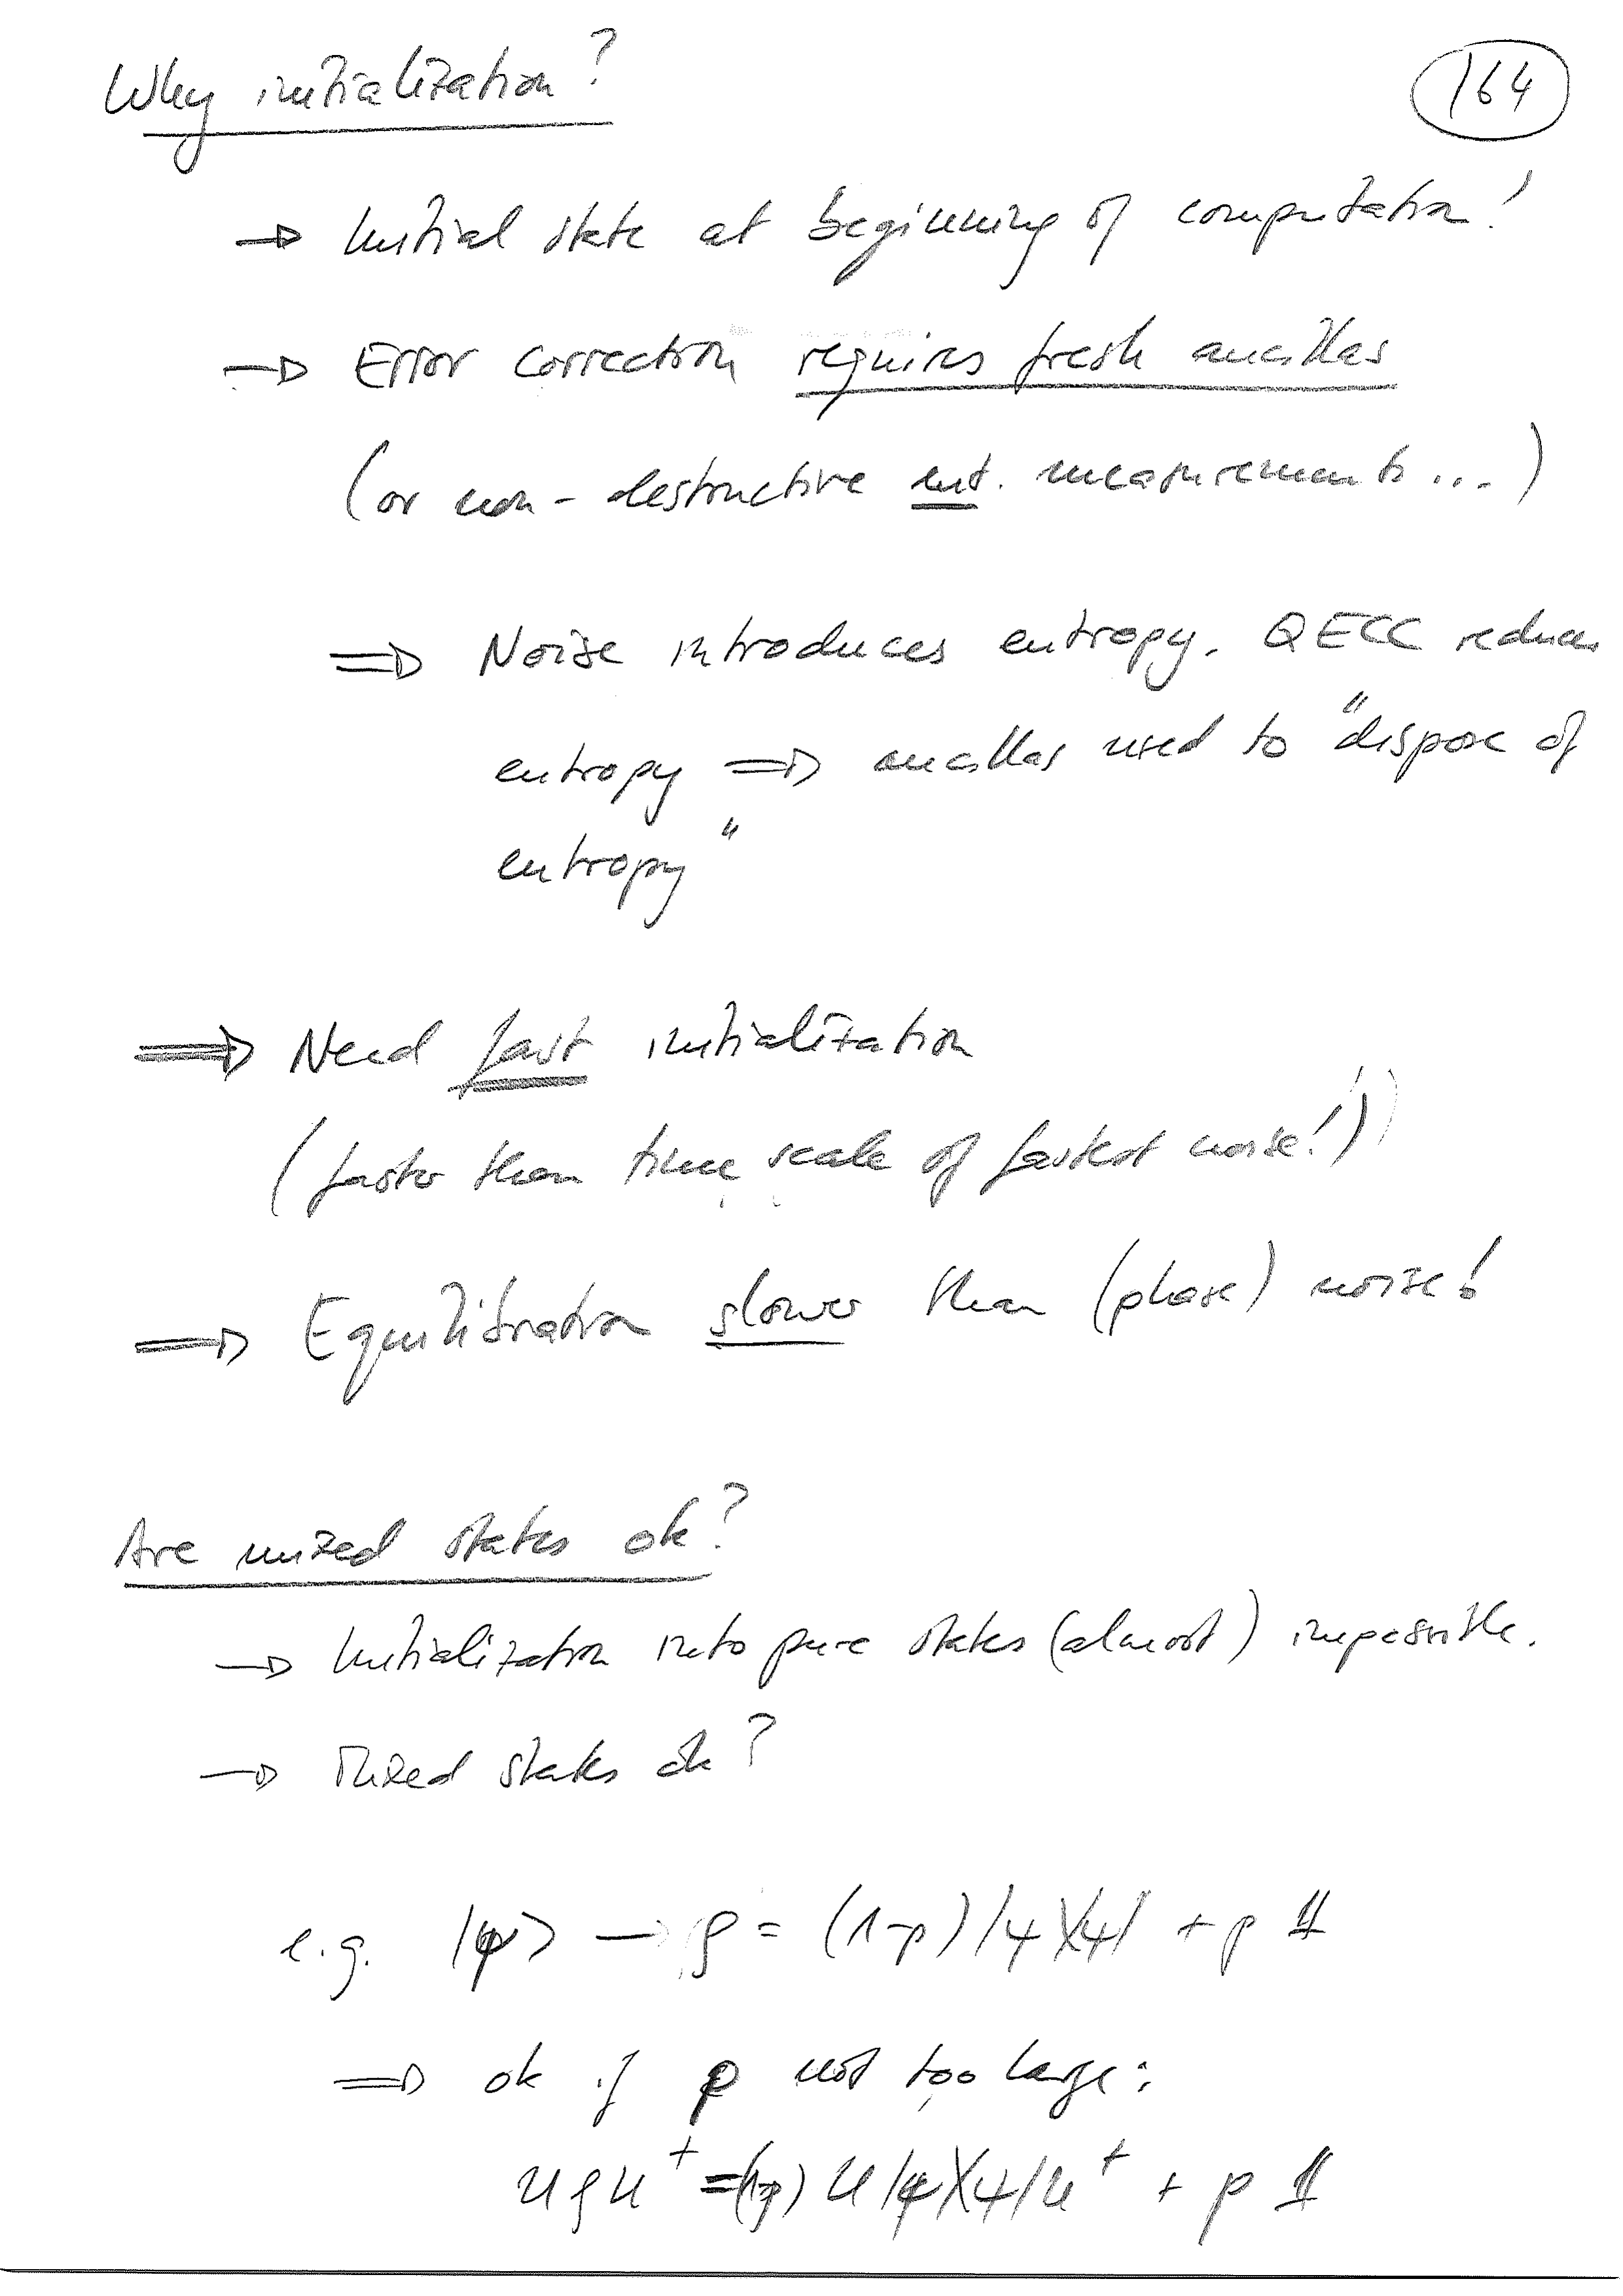 Why initialization?
164
→ Initial state at beginning of computation!
→ Error correction requires fresh ancillas
(or non-destructive ent. measurements...)
⇒ Noise introduces entropy. QECC reduces
entropy ⇒ ancillas used to "dispose of
entropy"
⇒ Need fast initialization
(faster than time scale of fastest noise!)
⇒ Equilibration slower than (phase) noise!
Are mixed states ok?
→ Initialization into pure states (almost) impossible.
→ Mixed states ok?
e.g. |ψ⟩ → ρ = (1-p)|ψ⟩⟨ψ| + p 𝟙
⇒ ok if p not too large:
UρU† = (1-p) U|ψ⟩⟨ψ|U† + p 𝟙